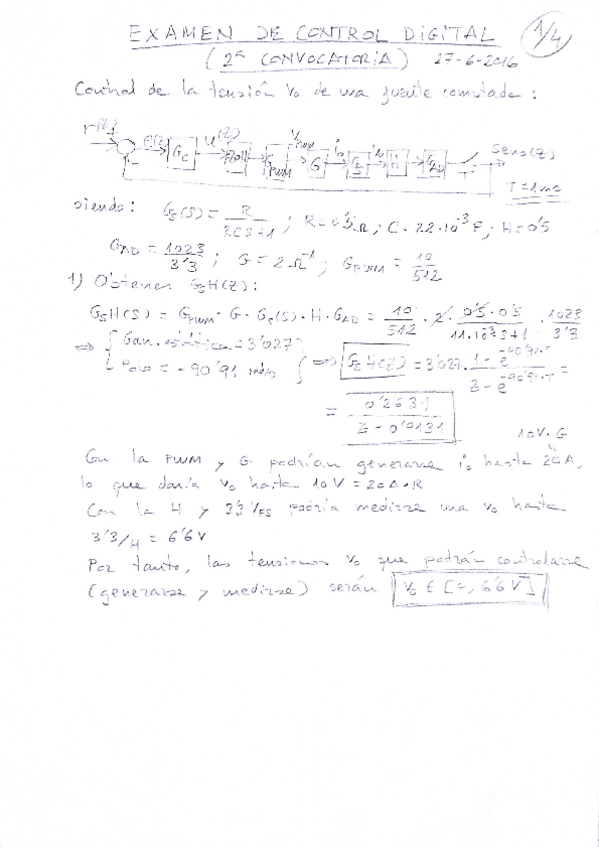 EXAMEN DE CONTROL DIGITAL 1/4
(2ª CONVOCATORIA) 27-6-2016
Control de la tensión Vo de una fuente conmutada:
r(z) e(z) Gc u(z) GPWM VPWM G io Gs Vo H GAD Sens(z)
T=1ms
siendo: Gs(s) = R / RCs+1 ; R=0'5Ω ; C=22·10⁻³F ; H=0'5
GAD = 1023 / 3'3 ; G=2Ω⁻¹ ; GPWM = 10 / 512
1) Obtener GsH(z):
GsH(s) = GPWM · G · Gs(s) · H · GAD = 10/512 · 2 · 0'5·0'5 / 11·10⁻³s+1 · 1023/3'3
⇒ { Gan. estática = 3'027 Polo = -90'91 rad/s } ⇒ GsH(z) = 3'027 · 1-e^(-90'91·T) / z-e^(-90'91·T) =
= 0'2631 / z-0'9131
10V·G
Con la PWM y G podrían generarse io hasta 20A,
lo que daría Vo hasta 10V = 20A·R
Con la H y 3'3 VFS podría medirse una Vo hasta
3'3/H = 6'6V
Por tanto, las tensiones Vo que podrán controlarse
(generarse y medirse) serán Vo ∈ [0, 6'6V]